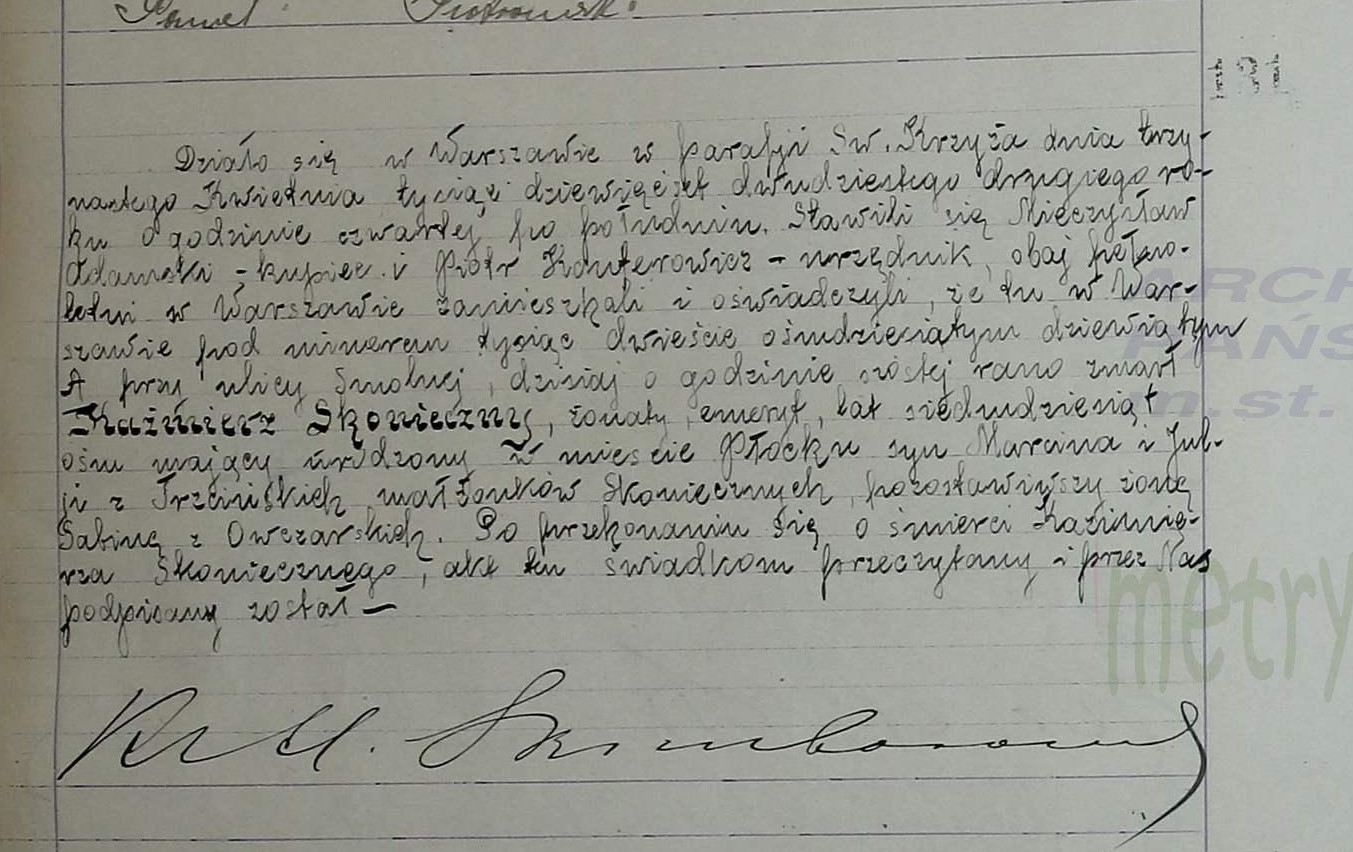 Paweł Piotrowski
Działo się w Warszawie w parafji Św. Krzyża dnia trzy-
nastego Kwietnia tysiąc dziewięćset dwudziestego drugiego ro-
ku o godzinie czwartej po południu. Stawili się Mieczysław
Adamski - kupiec i Piotr Kanterowicz - urzędnik, obaj pełno-
letni w Warszawie zamieszkali i oświadczyli, że tu w War-
szawie pod numerem tysiąc dwieście ośmdziesiątym dziewiątym
A przy ulicy Smolnej, dzisiaj o godzinie szóstej rano zmarł
Kazimierz Skonieczny, żonaty, emeryt, lat siedmdziesiąt
ośm mający urodzony w mieście Płocku syn Marcina i Jul-
ji z Trzcińskich małżonków Skoniecznych, pozostawiwszy żonę
Sabinę z Owczarskich. Po przekonaniu się o śmierci Kazimie-
rza Skoniecznego, akt ten świadkom przeczytany i przez Nas
podpisany został —
ARCH
PAŃS
m. st.
metry